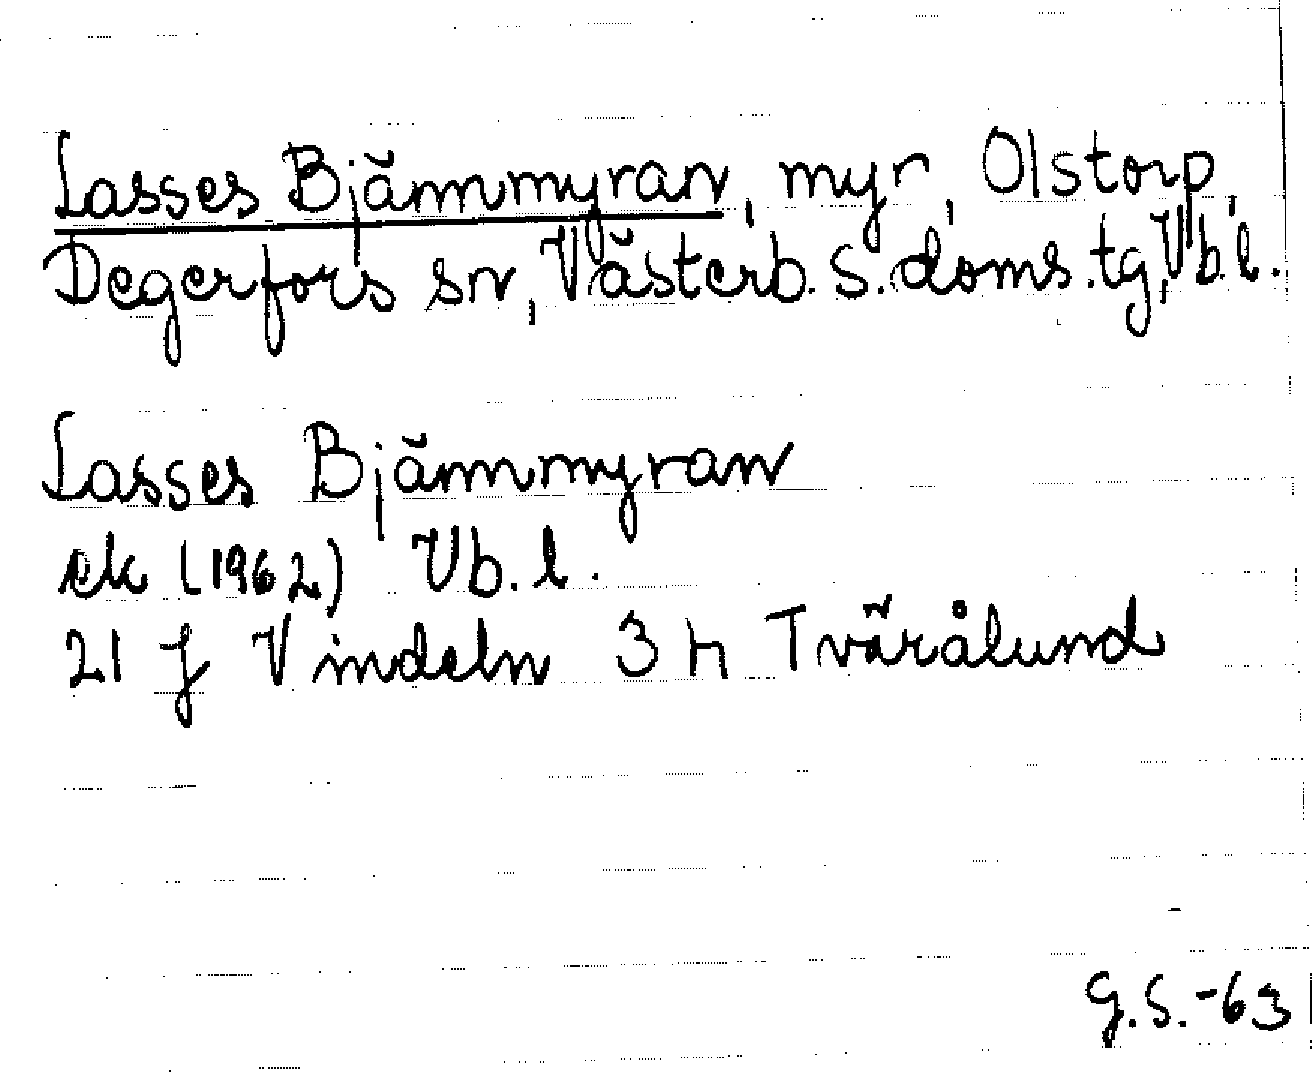 Lasses Bjännmyran, myr, Olstorp,
Degerfors sn, Västerb. s. doms.tg, Vb.l.
Lasses Bjännmyran
ek (1962) Vb. l.
21 J Vindeln 3 h Tvärålund
G.S.-63